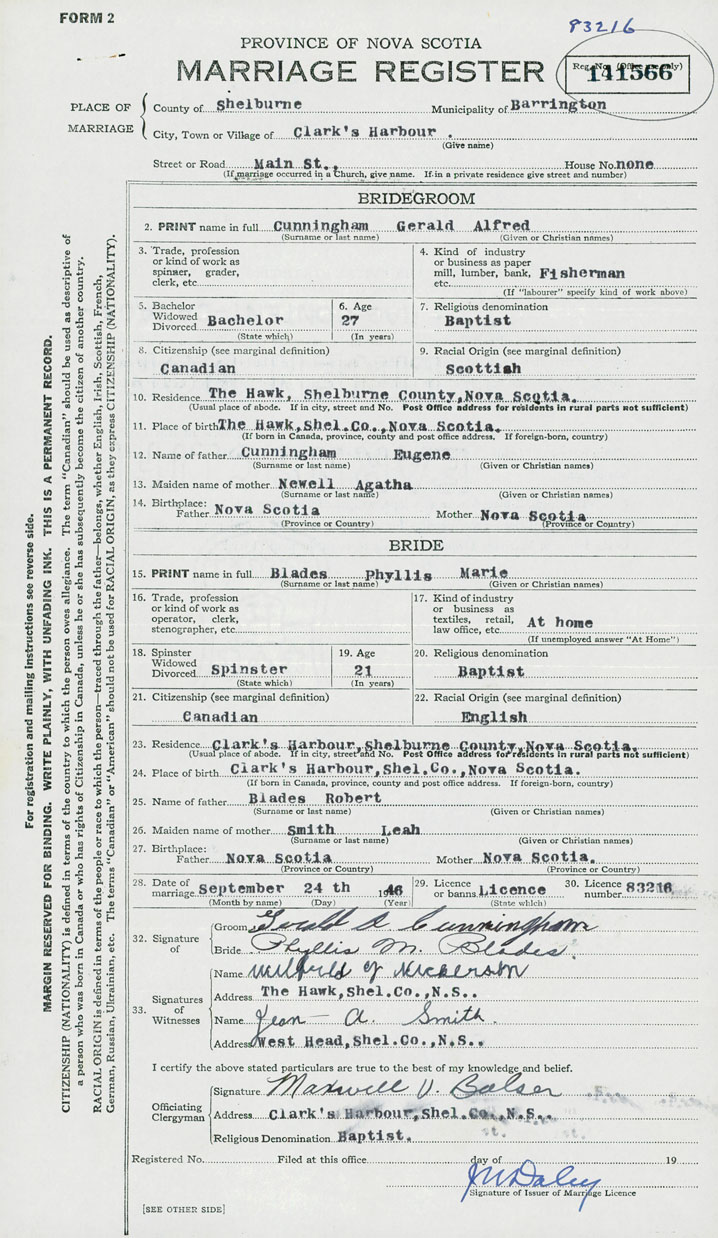 FORM 2
83216
PROVINCE OF NOVA SCOTIA
MARRIAGE REGISTER
Reg. No. (Office use only)
141566
PLACE OF MARRIAGE
County of Shelburne Municipality of Barrington
City, Town or Village of Clark's Harbour .
(Give name)
Street or Road Main St., House No. none
(If marriage occurred in a Church, give name. If in a private residence give street and number)
BRIDEGROOM
2. PRINT name in full Cunningham Gerald Alfred
(Surname or last name) (Given or Christian names)
3. Trade, profession or kind of work as spinner, grader, clerk, etc.
4. Kind of industry or business as paper mill, lumber, bank, etc. Fisherman
(If "labourer" specify kind of work above)
5. Bachelor Widowed Divorced Bachelor
(State which)
6. Age 27
(In years)
7. Religious denomination
Baptist
8. Citizenship (see marginal definition)
Canadian
9. Racial Origin (see marginal definition)
Scottish
10. Residence The Hawk, Shelburne County, Nova Scotia.
(Usual place of abode. If in city, street and No. Post Office address for residents in rural parts not sufficient)
11. Place of birth The Hawk, Shel.Co., Nova Scotia.
(If born in Canada, province, county and post office address. If foreign-born, country)
12. Name of father Cunningham Eugene
(Surname or last name) (Given or Christian names)
13. Maiden name of mother Newell Agatha
(Surname or last name) (Given or Christian names)
14. Birthplace: Father Nova Scotia Mother Nova Scotia
(Province or Country) (Province or Country)
BRIDE
15. PRINT name in full Blades Phyllis Marie
(Surname or last name) (Given or Christian names)
16. Trade, profession or kind of work as operator, clerk, stenographer, etc.
17. Kind of industry or business as textiles, retail, law office, etc. At home
(If unemployed answer "At Home")
18. Spinster Widowed Divorced Spinster
(State which)
19. Age 21
(In years)
20. Religious denomination
Baptist
21. Citizenship (see marginal definition)
Canadian
22. Racial Origin (see marginal definition)
English
23. Residence Clark's Harbour, Shelburne County, Nova Scotia.
(Usual place of abode. If in city, street and No. Post Office address for residents in rural parts not sufficient)
24. Place of birth Clark's Harbour, Shel.Co., Nova Scotia.
(If born in Canada, province, county and post office address. If foreign-born, country)
25. Name of father Blades Robert
(Surname or last name) (Given or Christian names)
26. Maiden name of mother Smith Leah
(Surname or last name) (Given or Christian names)
27. Birthplace: Father Nova Scotia Mother Nova Scotia.
(Province or Country) (Province or Country)
28. Date of marriage September 24 th 1946
(Month by name) (Day) (Year)
29. Licence or banns Licence
(State which)
30. Licence number 83216
32. Signature of
Groom Gerald A Cunningham
Bride Phyllis M. Blades.
33. Signatures of Witnesses
Name Mildred J Nickerson
Address The Hawk, Shel.Co., N.S..
Name Jean A. Smith.
Address West Head, Shel.Co., N.S..
I certify the above stated particulars are true to the best of my knowledge and belief.
Officiating Clergyman
Signature Maxwell V. Balser
Address Clark's Harbour, Shel.Co., N.S..
Religious Denomination Baptist.
Registered No. Filed at this office day of 19
Signature of Issuer of Marriage Licence
[SEE OTHER SIDE]
For registration and mailing instructions see reverse side.
MARGIN RESERVED FOR BINDING. WRITE PLAINLY, WITH UNFADING INK. THIS IS A PERMANENT RECORD.
CITIZENSHIP (NATIONALITY) is defined in terms of the country to which the person owes allegiance. The term "Canadian" should be used as descriptive of
a person who was born in Canada or who has rights of Citizenship in Canada, unless he or she has subsequently become the citizen of another country.
RACIAL ORIGIN is defined in terms of the people or race to which the person—traced through the father—belongs, whether English, Irish, Scottish, French,
German, Russian, Ukrainian, etc. The terms "Canadian" or "American" should not be used for RACIAL ORIGIN, as they express CITIZENSHIP (NATIONALITY).